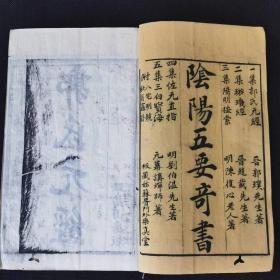 一集郭氏元經 晉郭璞先生著
二集璇璣經 晉趙載先生著
三集陽明按索 明陳復心老人著
陰陽五要奇書
四集佐元直指 明劉伯温先生著
五集三白寶海 元幕講禪師著
附八宅明鏡